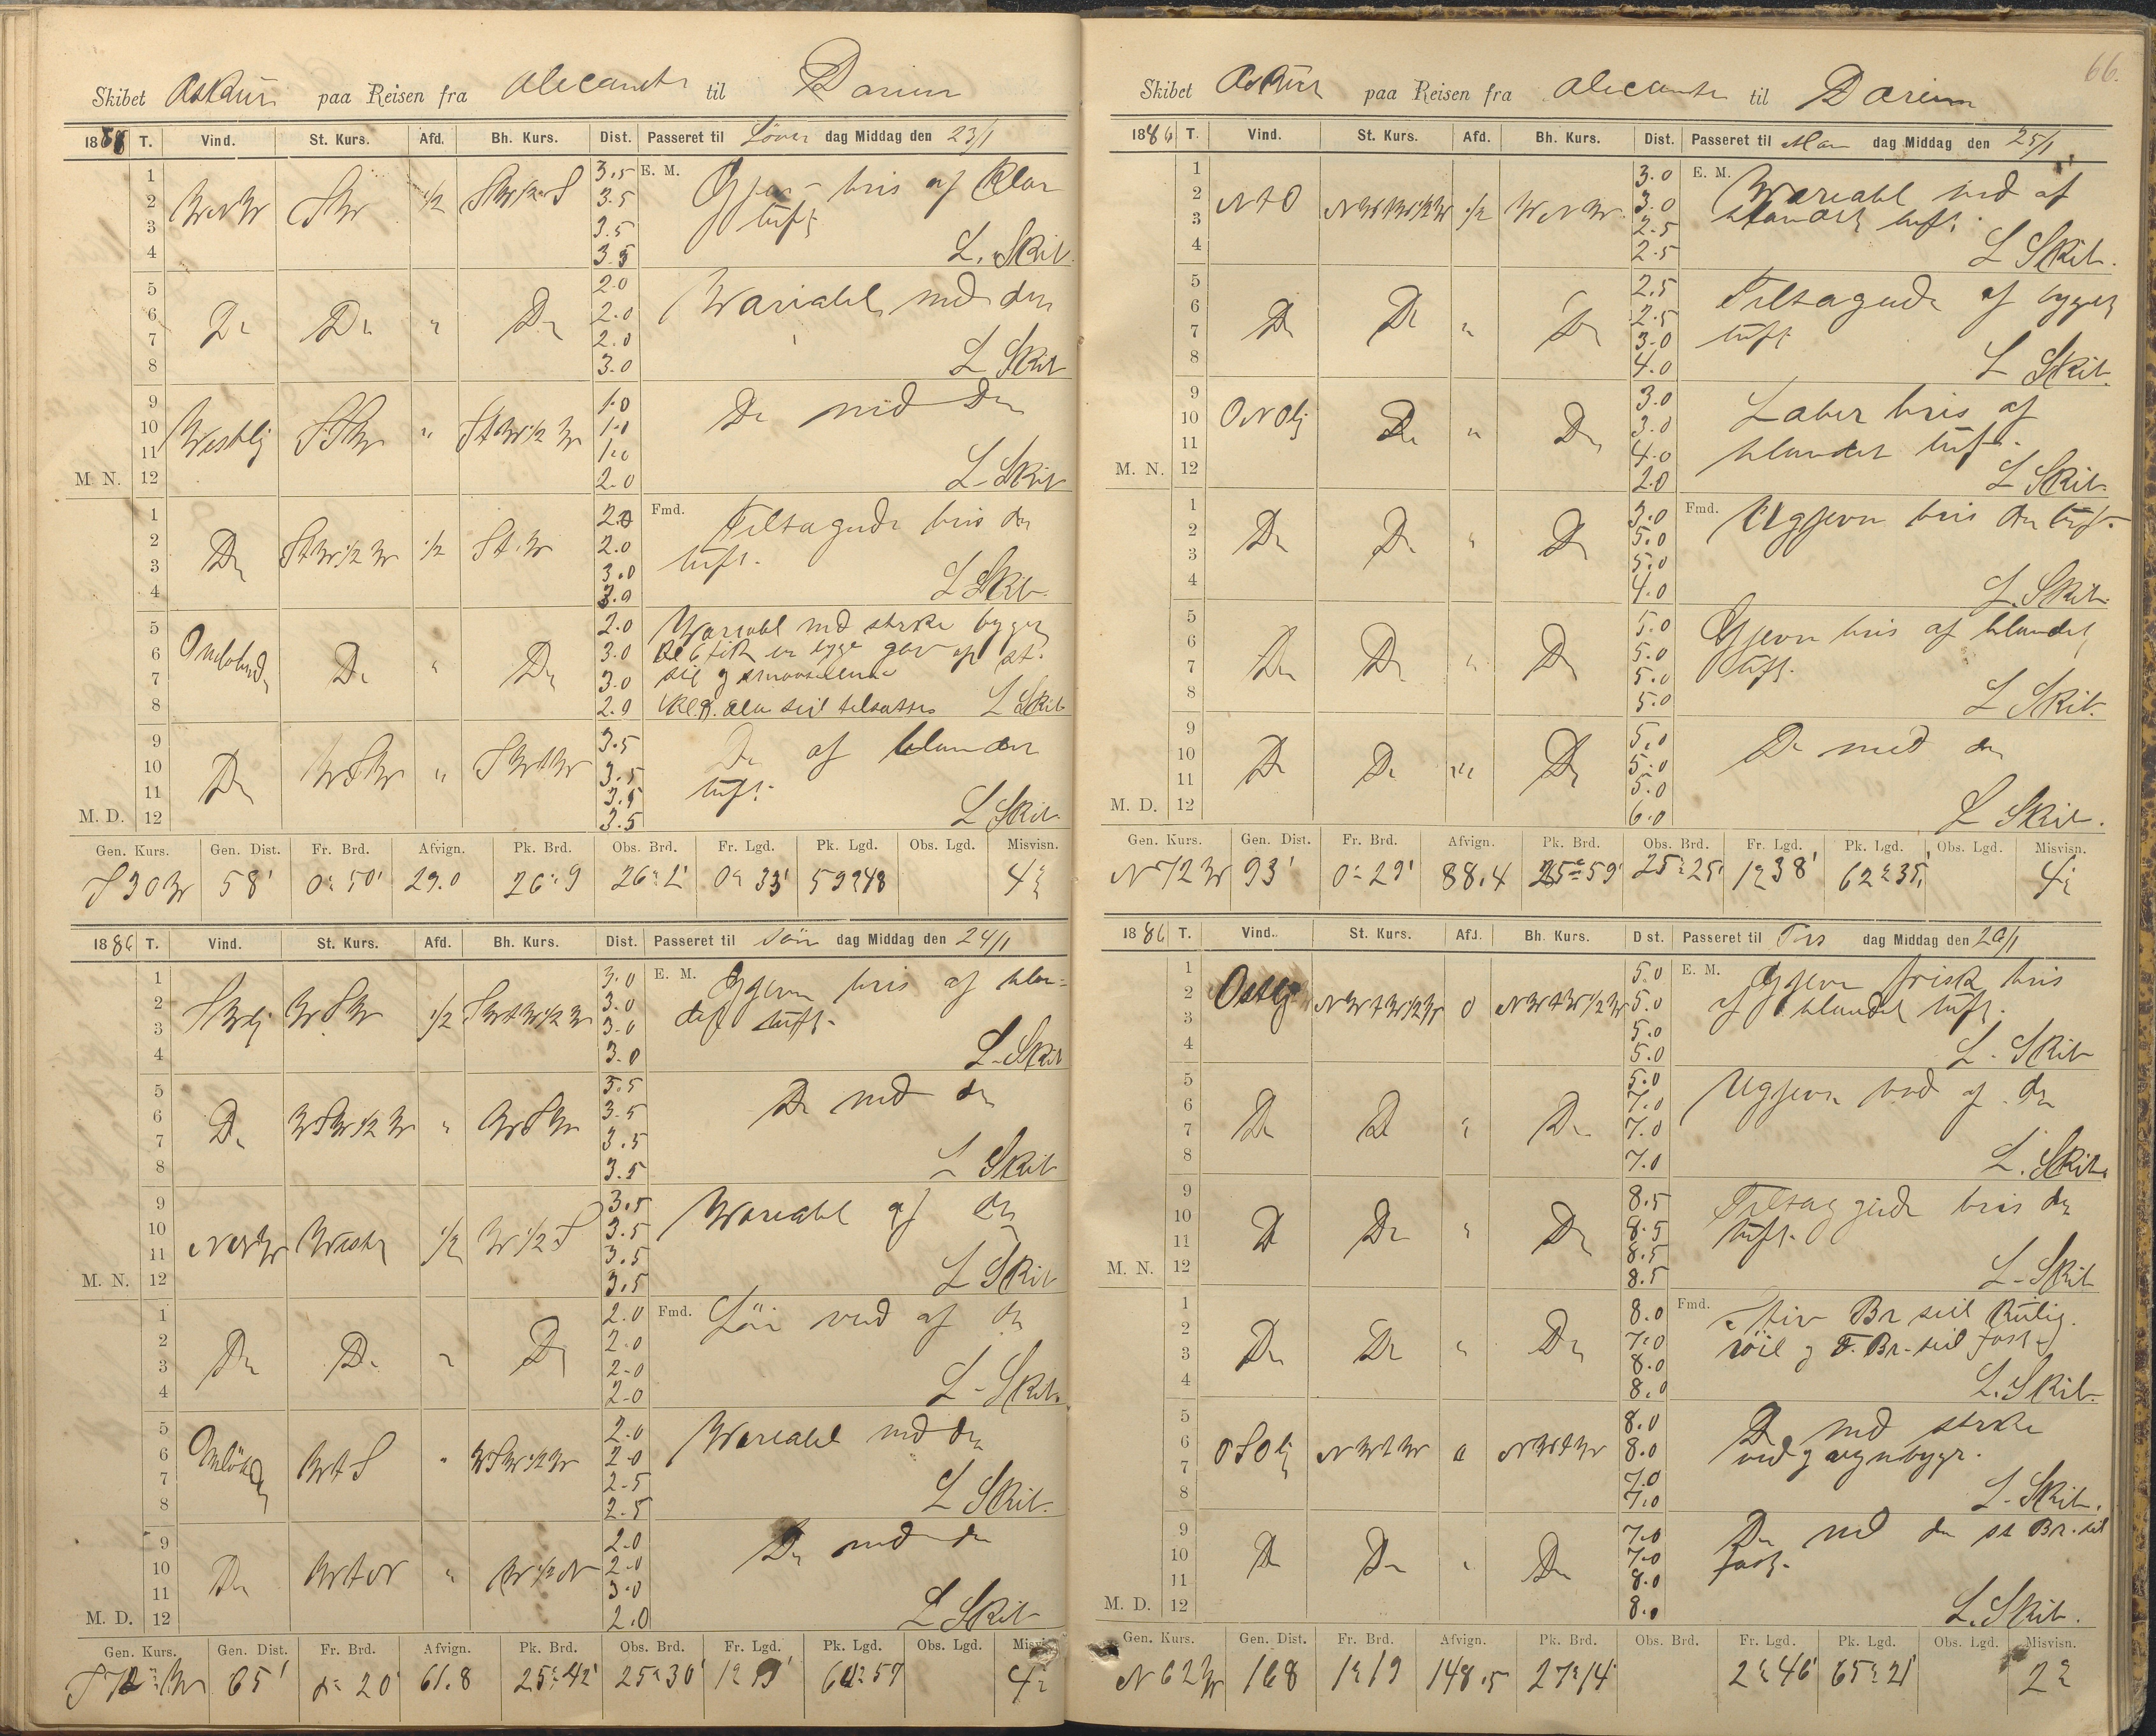 Skibet Askur paa Reisen fra Alecante til Darien
1886 T. Vind. St. Kurs. Afd. Bh. Kurs. Dist. Passeret til Löver dag Middag den 23/1
1 3.5 E. M. Gjev- bris af Klar
2 WNW SW 1/2 SW 1/2 S 3.5 luft
3 3.5
4 3.5 L. Skib.
5 2.0 Wariabel med do
6 Do Do " Do 2.0
7 2.0
8 3.0 L Skib
9 1.0 Do med Do
10 Westlig SSW " StW 1/2 W 1.0
11 1.0
M. N. 12 2.0 L-Skib
1 2.0 Fmd. Tiltagende bris do
2 Do StW 1/2 W 1/2 St.W 2.0 luft.
3 3.0
4 3.0 L Skib.
5 2.0 Wariabel med sterke byger
6 Do " Do 3.0
7 3.0
8 2.0 L Skib
9 3.5 Do af blandet
10 Do WSW " SWtW 3.5 luft.
11 3.5
M. D. 12 3.5 L Skib.
Gen. Kurs. Gen. Dist. Fr. Brd. Afvign. Pk. Brd. Obs. Brd. Fr. Lgd. Pk. Lgd. Obs. Lgd. Misvisn.
S 30 W 58' 0° 50' 29.0 26° 9 0° 33' 59° 48
1886 T. Vind. St. Kurs. Afd. Bh. Kurs. Dist. Passeret til Sön dag Middag den 24/1
1 3.0 E. M. Gjevn bris af blan-
2 SWlj WSW 1/2 SWtW 1/2 W 3.0 det luft.
3 3.0
4 3.0 L-Skib
5 3.5 Do med do
6 Do WSW 1/2 W " WSW 3.5
7 3.5
8 3.5 L Skib
9 3.5 Wariabel af do
10 NNW West 1/2 W 1/2 S 3.5
11 3.5
M. N. 12 3.5 L Skib
1 2.0 Fmd. vind af do
2 Do Do " Do 2.0
3 2.0
4 2.0 L-Skib.
5 2.0 Wariabel med do
6 WtS " WSW 1/2 W 2.0
7 2.5
8 2.5 L Skib.
9 2.0 Do med do
10 Do WtN " W 1/2 N 2.0
11 3.0
M. D. 12 2.0 L Skib
Gen. Kurs. Gen. Dist. Fr. Brd. Afvign. Pk. Brd. Obs. Brd. Fr. Lgd. Pk. Lgd. Obs. Lgd. Misvisn.
65' 20' 61.8 25° 42' 25° 30'
66.
Skibet Askur paa Reisen fra Alecante til Darien
1886 T. Vind. St. Kurs. Afd. Bh. Kurs. Dist. Passeret til Man dag Middag den 25/1
1 3.0 E. M. Wariabel vind af
2 NtO NWtW 1/2 W 1/2 WNW 3.0 blandet luft.
3 2.5
4 2.5 L Skib.
5 2.5 Tiltagende af byget
6 Do Do " Do 2.5 luft
7 3.0
8 4.0 L Skib.
9 3.0 Laber bris af
10 ONOlj Do " Do 3.0 blandet luft.
11 4.0
M. N. 12 2.0 L Skib.
1 3.0 Fmd. Ugjevn bris do luft.
2 Do Do " Do 5.0
3 5.0
4 4.0 L. Skib.
5 5.0 Gjevn bris af blandet
6 Do Do " Do 5.0 luft.
7 5.0
8 5.0 L Skib.
9 5.0 Do med do
10 Do Do " Do 5.0
11 5.0
M. D. 12 6.0 L Skib.
Gen. Kurs. Gen. Dist. Fr. Brd. Afvign. Pk. Brd. Obs. Brd. Fr. Lgd. Pk. Lgd. Obs. Lgd. Misvisn.
N 72 W 93' 0° 29' 88.4 25° 59' 25° 25' 1° 38' 62° 35' 4°
1886 T. Vind. St. Kurs. Afd. Bh. Kurs. Dist. Passeret til Tirs dag Middag den 26/1
1 5.0 E. M. Gjevn frisk bris
2 Ostlig NWtW 1/2 W 0 NWtW 1/2 W 5.0 af blandet luft.
3 5.0
4 5.0 L. Skib
5 5.0 Ugjevn vind af do
6 Do Do " Do 7.0
7 7.0
8 7.0 L. Skib.
9 8.5 Tiltaggende bris do
10 Do Do " Do 8.5 luft.
11 8.5
M. N. 12 8.5 L-Skib
1 8.0 Fmd. Stiv Br seil
2 Do Do " Do 7.0 röil og F. Br-seil fast
3 8.0
4 8.0 L. Skib.
5 8.0 Do med sterke
6 OSOlj NWtW 0 NWtW 8.0 vind og regnbyger.
7 7.0
8 7.0 L-Skib.
9 7.0 Do med do st Br. seil
10 Do Do " Do 7.0 fast.
11 8.0
M. D. 12 8.0 L. Skib.
Gen. Kurs. Gen. Dist. Fr. Brd. Afvign. Pk. Brd. Obs. Brd. Fr. Lgd. Pk. Lgd. Obs. Lgd. Misvisn.
N 62 W 168 1° 19 148.5 27° 14' 2° 46' 65° 21' 2°